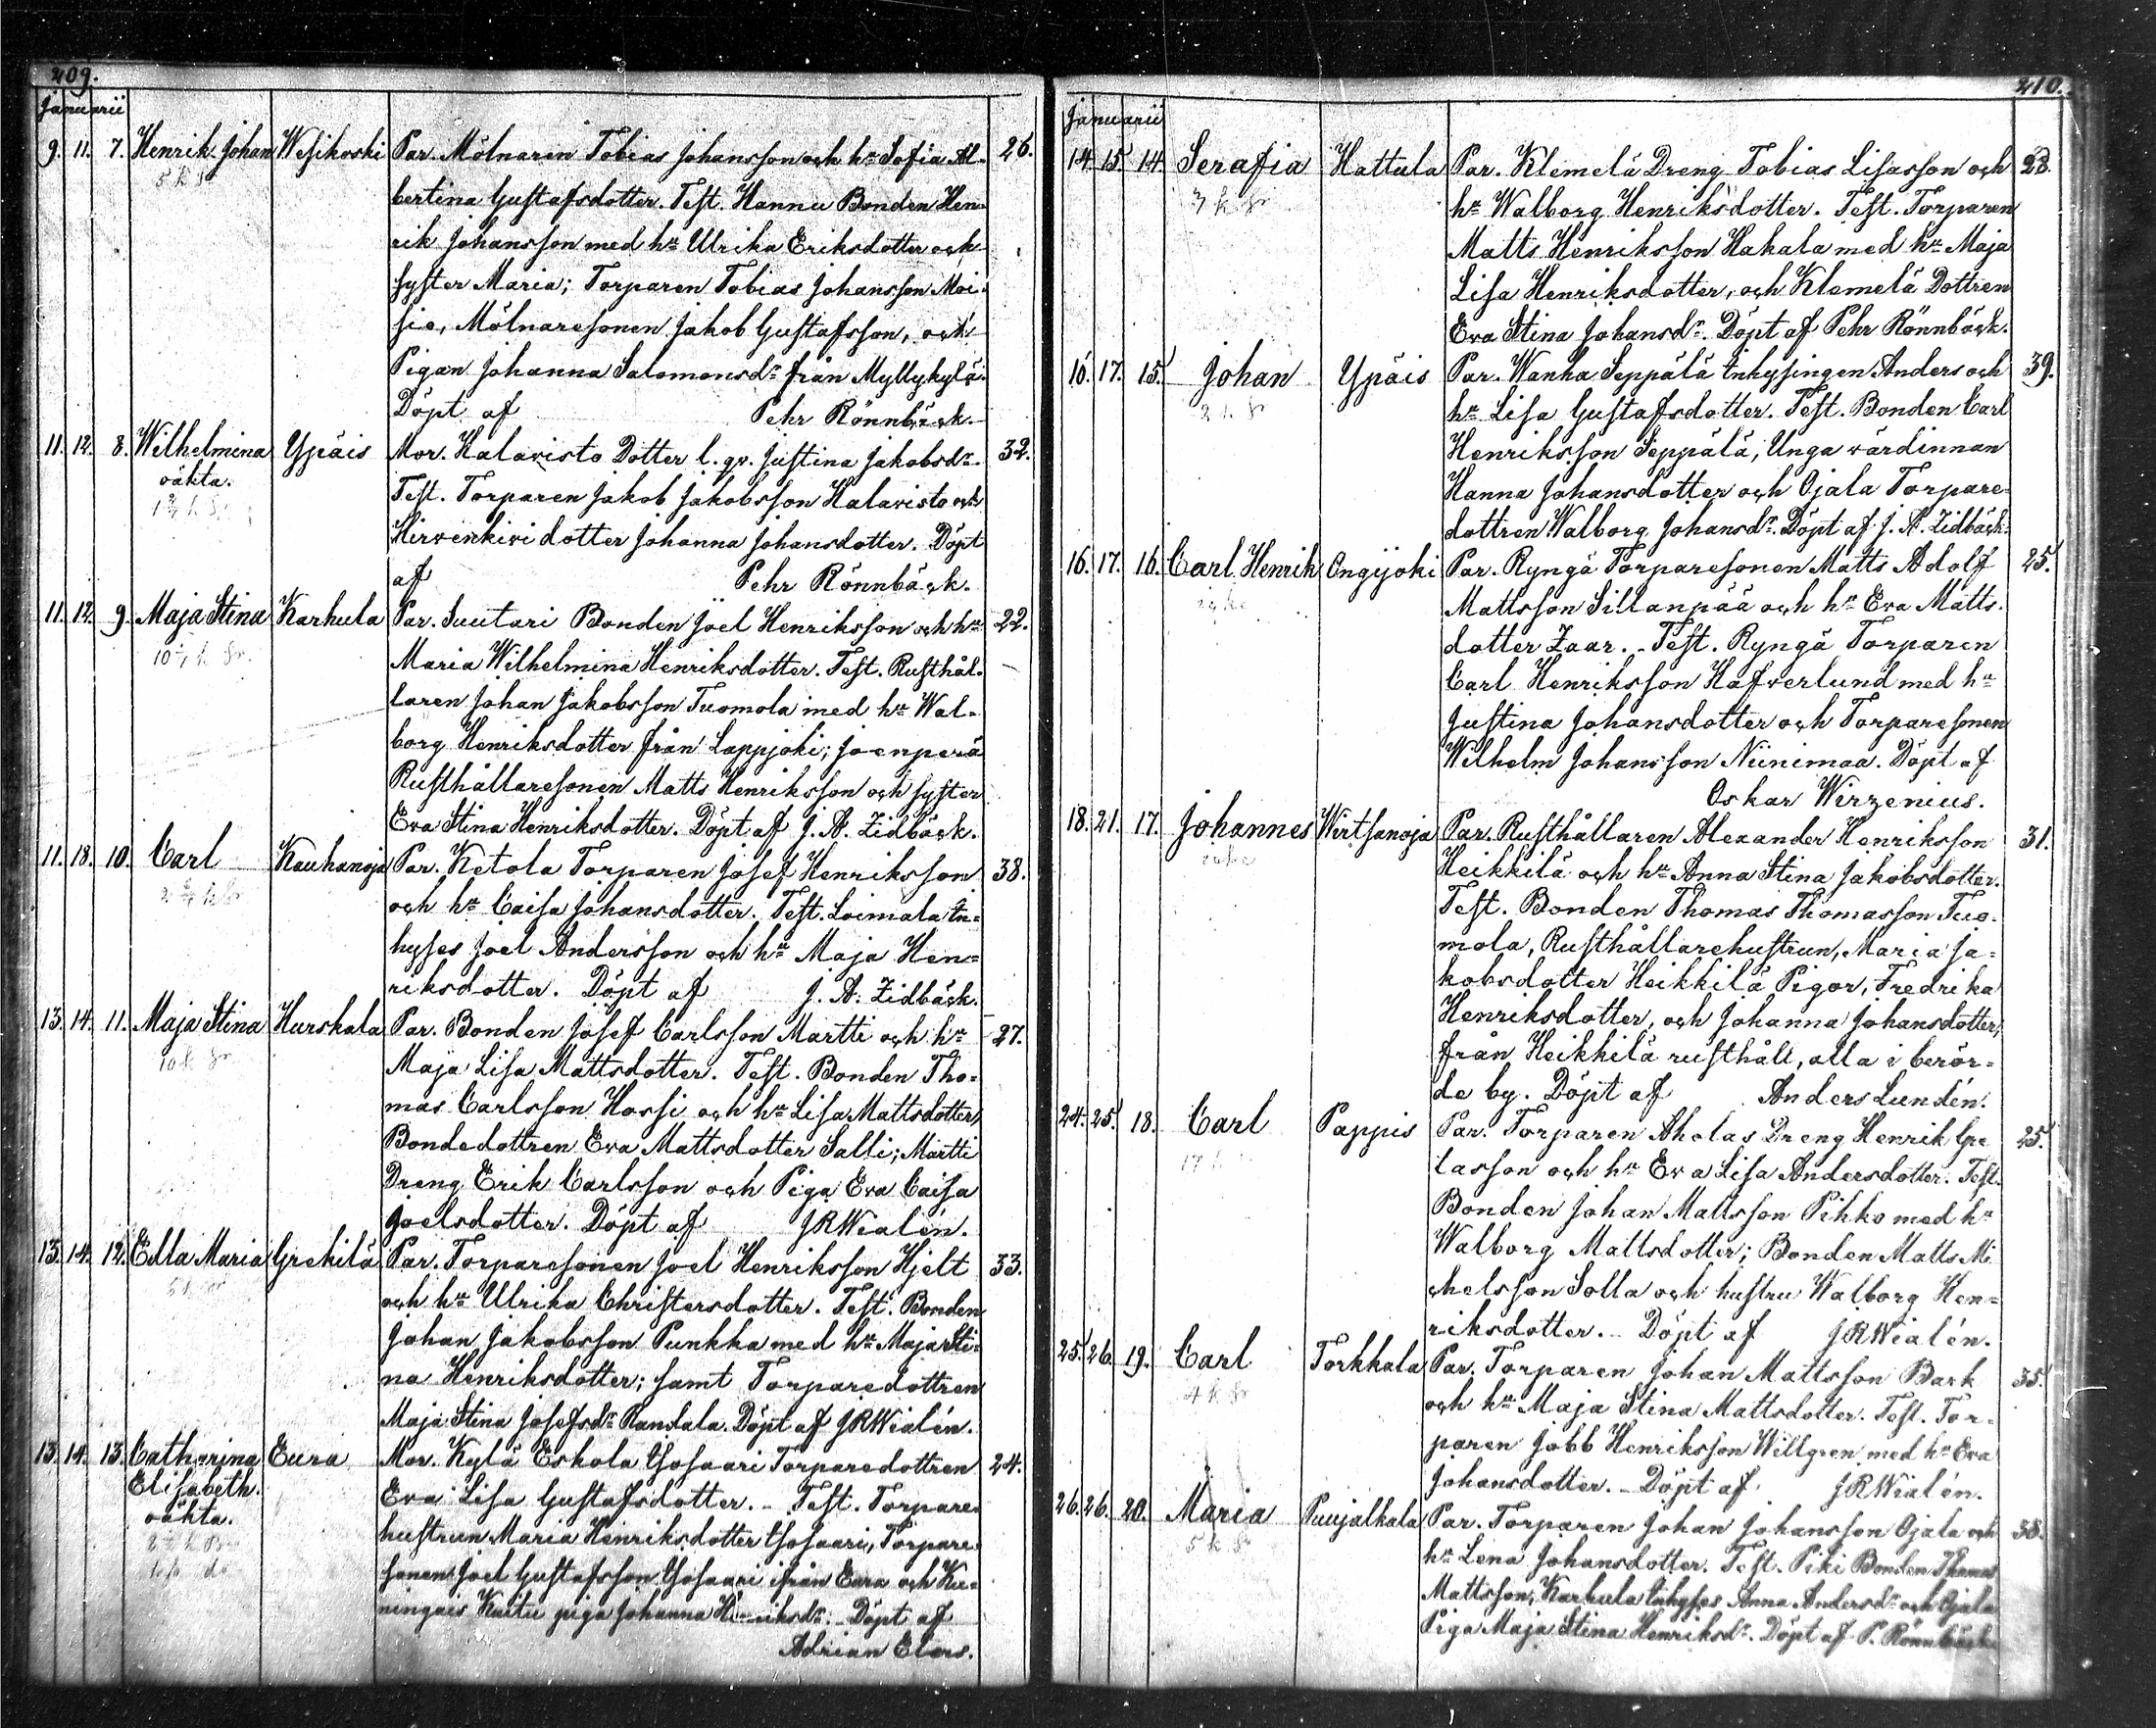 209.
Januarii
9. 11. 7. Henrik Johan Wesikoski Par. Mölnaren Tobias Johansson och hu Sofia Al- 26.
bertina Gustafsdotter. Test. Hannu Bonden Hen-
rik Johansson med hu Ulrika Eriksdotter och
syster Maria; Torparen Tobias Johansson Moi-
sio, Mölnaresonen Jakob Gustafsson, och
Pigan Johanna Salomonsdr från Myllykylä.
Döpt af Pehr Rönnbäck.
11. 12. 8. Wilhelmina Ypäis Mor. Halavisto Dotter l. qv. Justina Jakobsdr. 32.
oäkta. Test. Torparen Jakob Jakobsson Halavisto och
Hirvenkivi dotter Johanna Johansdotter. Döpt
af Pehr Rönnbäck.
11. 12. 9. Maja Stina Karhula Par. Suutari Bonden Joel Henriksson och hu 22.
Maria Wilhelmina Henriksdotter. Test. Rusthål-
laren Johan Jakobsson Tuomola med hu Wal-
borg Henriksdotter från Lappjoki; Joenperä
Rusthållaresonen Matts Henriksson och syster
Eva Stina Henriksdotter. Döpt af J. A. Zidbäck.
11. 18. 10. Carl Kauhanoja Par. Ketola Torparen Josef Henriksson 38.
och hu Caisa Johansdotter. Test. Loimala In-
hyses Joel Andersson och hu Maja Hen-
riksdotter. Döpt af J. A. Zidbäck.
13. 14. 11. Maja Stina Hurskala Par. Bonden Josef Carlsson Martti och hu 27.
10 k
Maja Lisa Mattsdotter. Test. Bonden Tho-
mas Carlsson Hossi och hu Lisa Mattsdotter,
Bondedottren Eva Mattsdotter Salli; Martti
Dreng Erik Carlsson och Piga Eva Caisa
Joelsdotter. Döpt af JRWialén.
13. 14. 12. Edla Maria Grekilä Par. Torparesonen Joel Henriksson Hjelt 33.
och hu Ulrika Christersdotter. Test. Bonden
Johan Jakobsson Punkka med hu Maja Sti-
na Henriksdotter; samt Torparedottren
Maja Stina Josefsdr Randala. Döpt af JRWialén.
13. 14. 13. Catharina Eura Mor. Kylä Eskola Isosaari Torparedottren 24.
Elisabeth. Eva Lisa Gustafsdotter. - Test. Torpare-
oäkta. hustrun Maria Henriksdotter Isosaari, Torpare-
sonen Joel Gustafsson Isosaari ifrån Eura och Ku-
ningais Kaitu piga Johanna Henriksdr. Döpt af
Adrian Elors.
210.
Januarii
14. 15. 14. Serafia Hattula Par. Klemelä Dreng Tobias Lisasson och 28.
hu Walborg Henriksdotter. Test. Torparen
Matts Henriksson Hakala med hu Maja
Lisa Henriksdotter, och Klemelä Dottren
Eva Stina Johansdr. Döpt af Pehr Rönnbäck.
16. 17. 15. Johan Ypäis Par. Wanha Seppälä Inhysingen Anders och 39.
hu Lisa Gustafsdotter. Test. Bonden Carl
Henriksson Seppälä, Unga värdinnan
Hanna Johansdotter och Ojala Torpare-
dottren Walborg Johansdr. Döpt af J. A. Zidbäck.
16. 17. 16. Carl Henrik Ongijoki Par. Ryngä Torparesonen Matts Adolf 25.
Mattsson Sillanpää och hu Eva Matts-
dotter Zaar. - Test. Ryngä Torparen
Carl Henriksson Hafverlund med hu
Justina Johansdotter och Torparesonen
Wilhelm Johansson Niinimaa. Döpt af
Oskar Wirzenius.
18. 21. 17. Johannes Wirtsanoja Par. Rusthållaren Alexander Henriksson 31.
Heikkilä och hu Anna Stina Jakobsdotter.
Test. Bonden Thomas Thomasson Tuo-
mola, Rusthållarehustrun, Maria Ja-
kobsdotter Heikkilä Pigor, Fredrika
Henriksdotter, och Johanna Johansdotter,
från Heikkilä rusthåll, alla i berör-
de by. Döpt af Anders Lundén.
24. 25. 18. Carl Pappis Par. Torparen Aholas Dreng Henrik 25.
lasson och hu Eva Lisa Andersdotter. Test.
Bonden Johan Mattsson Pihko med hu
Walborg Mattsdotter; Bonden Matts Mi-
chelsson Solla och hustru Walborg Hen-
riksdotter. Döpt af JRWialén.
25. 26. 19. Carl Torkkala Par. Torparen Johan Mattsson Bark 35.
4 k
och hu Maja Stina Mattsdotter. Test. Tor-
paren Jobb Henriksson Willgren med hu Eva
Johansdotter. - Döpt af JRWialén.
26. 26. 20. Maria Puujalkala Par. Torparen Johan Johansson Ojala och 38.
5 k
hu Lena Johansdotter. Test. Piki Bonden Thomas
Mattsson, Karhula Inhyses Anna Andersdr och Ojala
Piga Maja Stina Henriksdr. Döpt af P. Rönnbäck